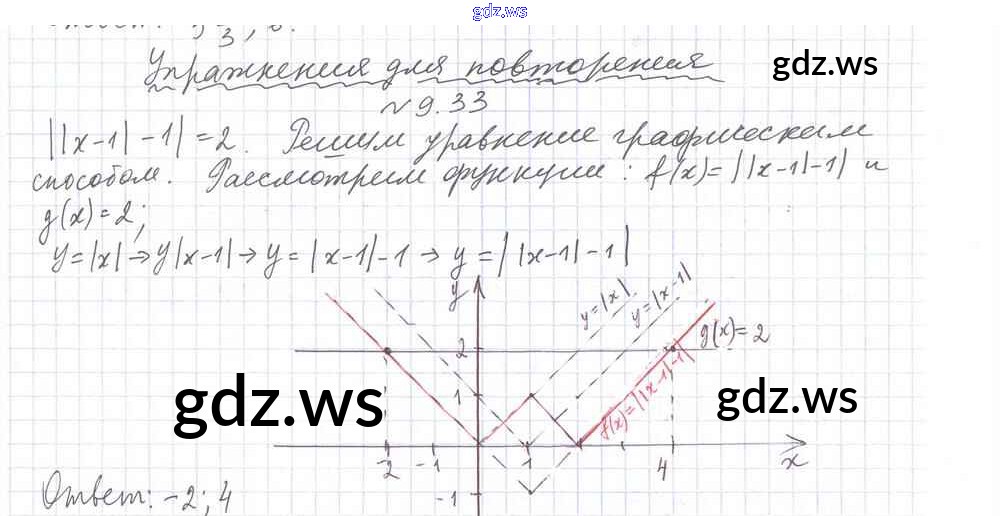 gdz.ws
Упражнения для повторения
gdz.ws
№ 9.33
||x-1|-1|=2. Решим уравнение графическим
способом. Рассмотрим функции: f(x)=||x-1|-1| и
g(x)=2;
y=|x|→y|x-1|→y=|x-1|-1→y=||x-1|-1|
y
y=|x|
y=|x-1|
2
g(x)=2
1
f(x)=||x-1|-1|
gdz.ws
gdz.ws
-2 -1 1 4 x
-1
Ответ: -2; 4